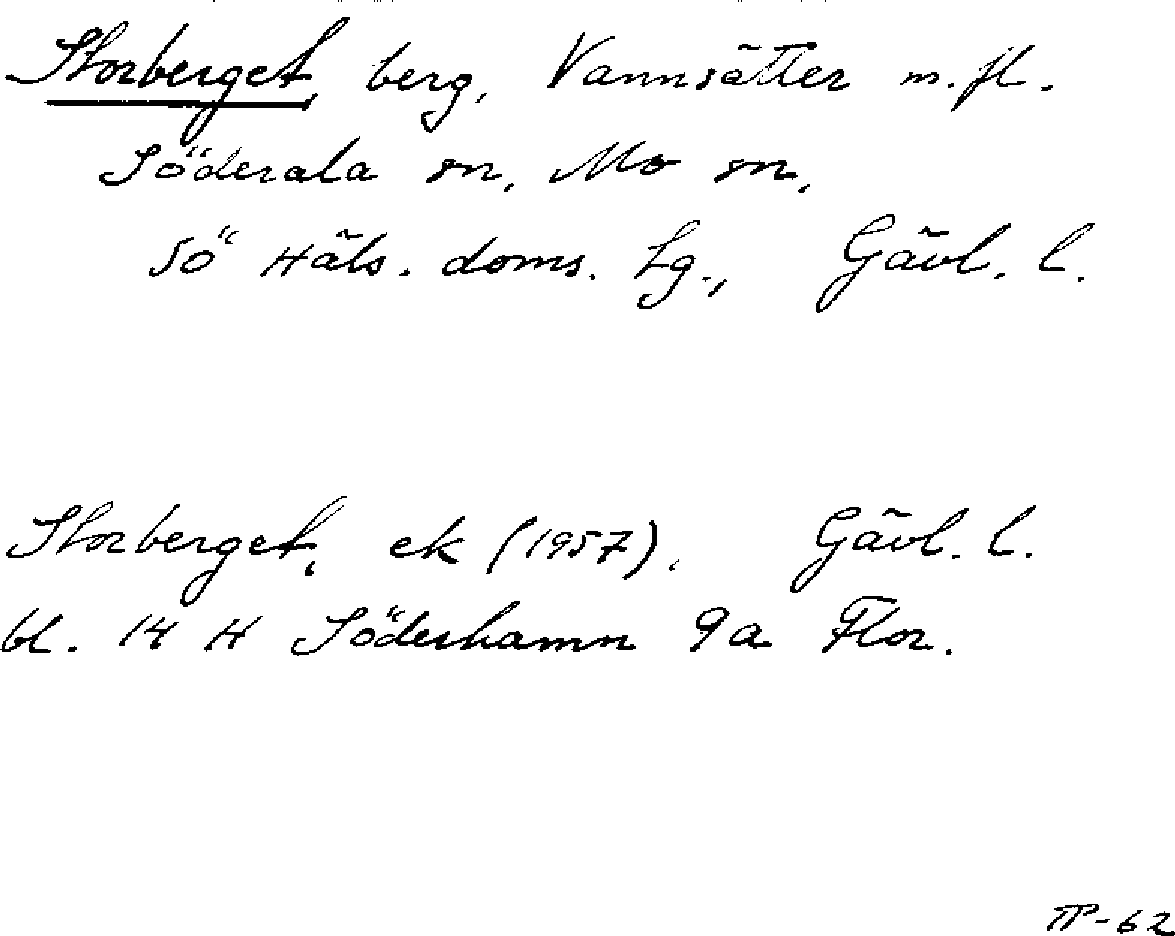 Storberget, berg, Vannsätter m.fl.
Söderala sn, Mo sn,
Sö Häls. doms. Lg., Gävl. l.
Storberget, ek (1957), Gävl. l.
bl. 14 H Söderhamn 9a Flor.
TP-62